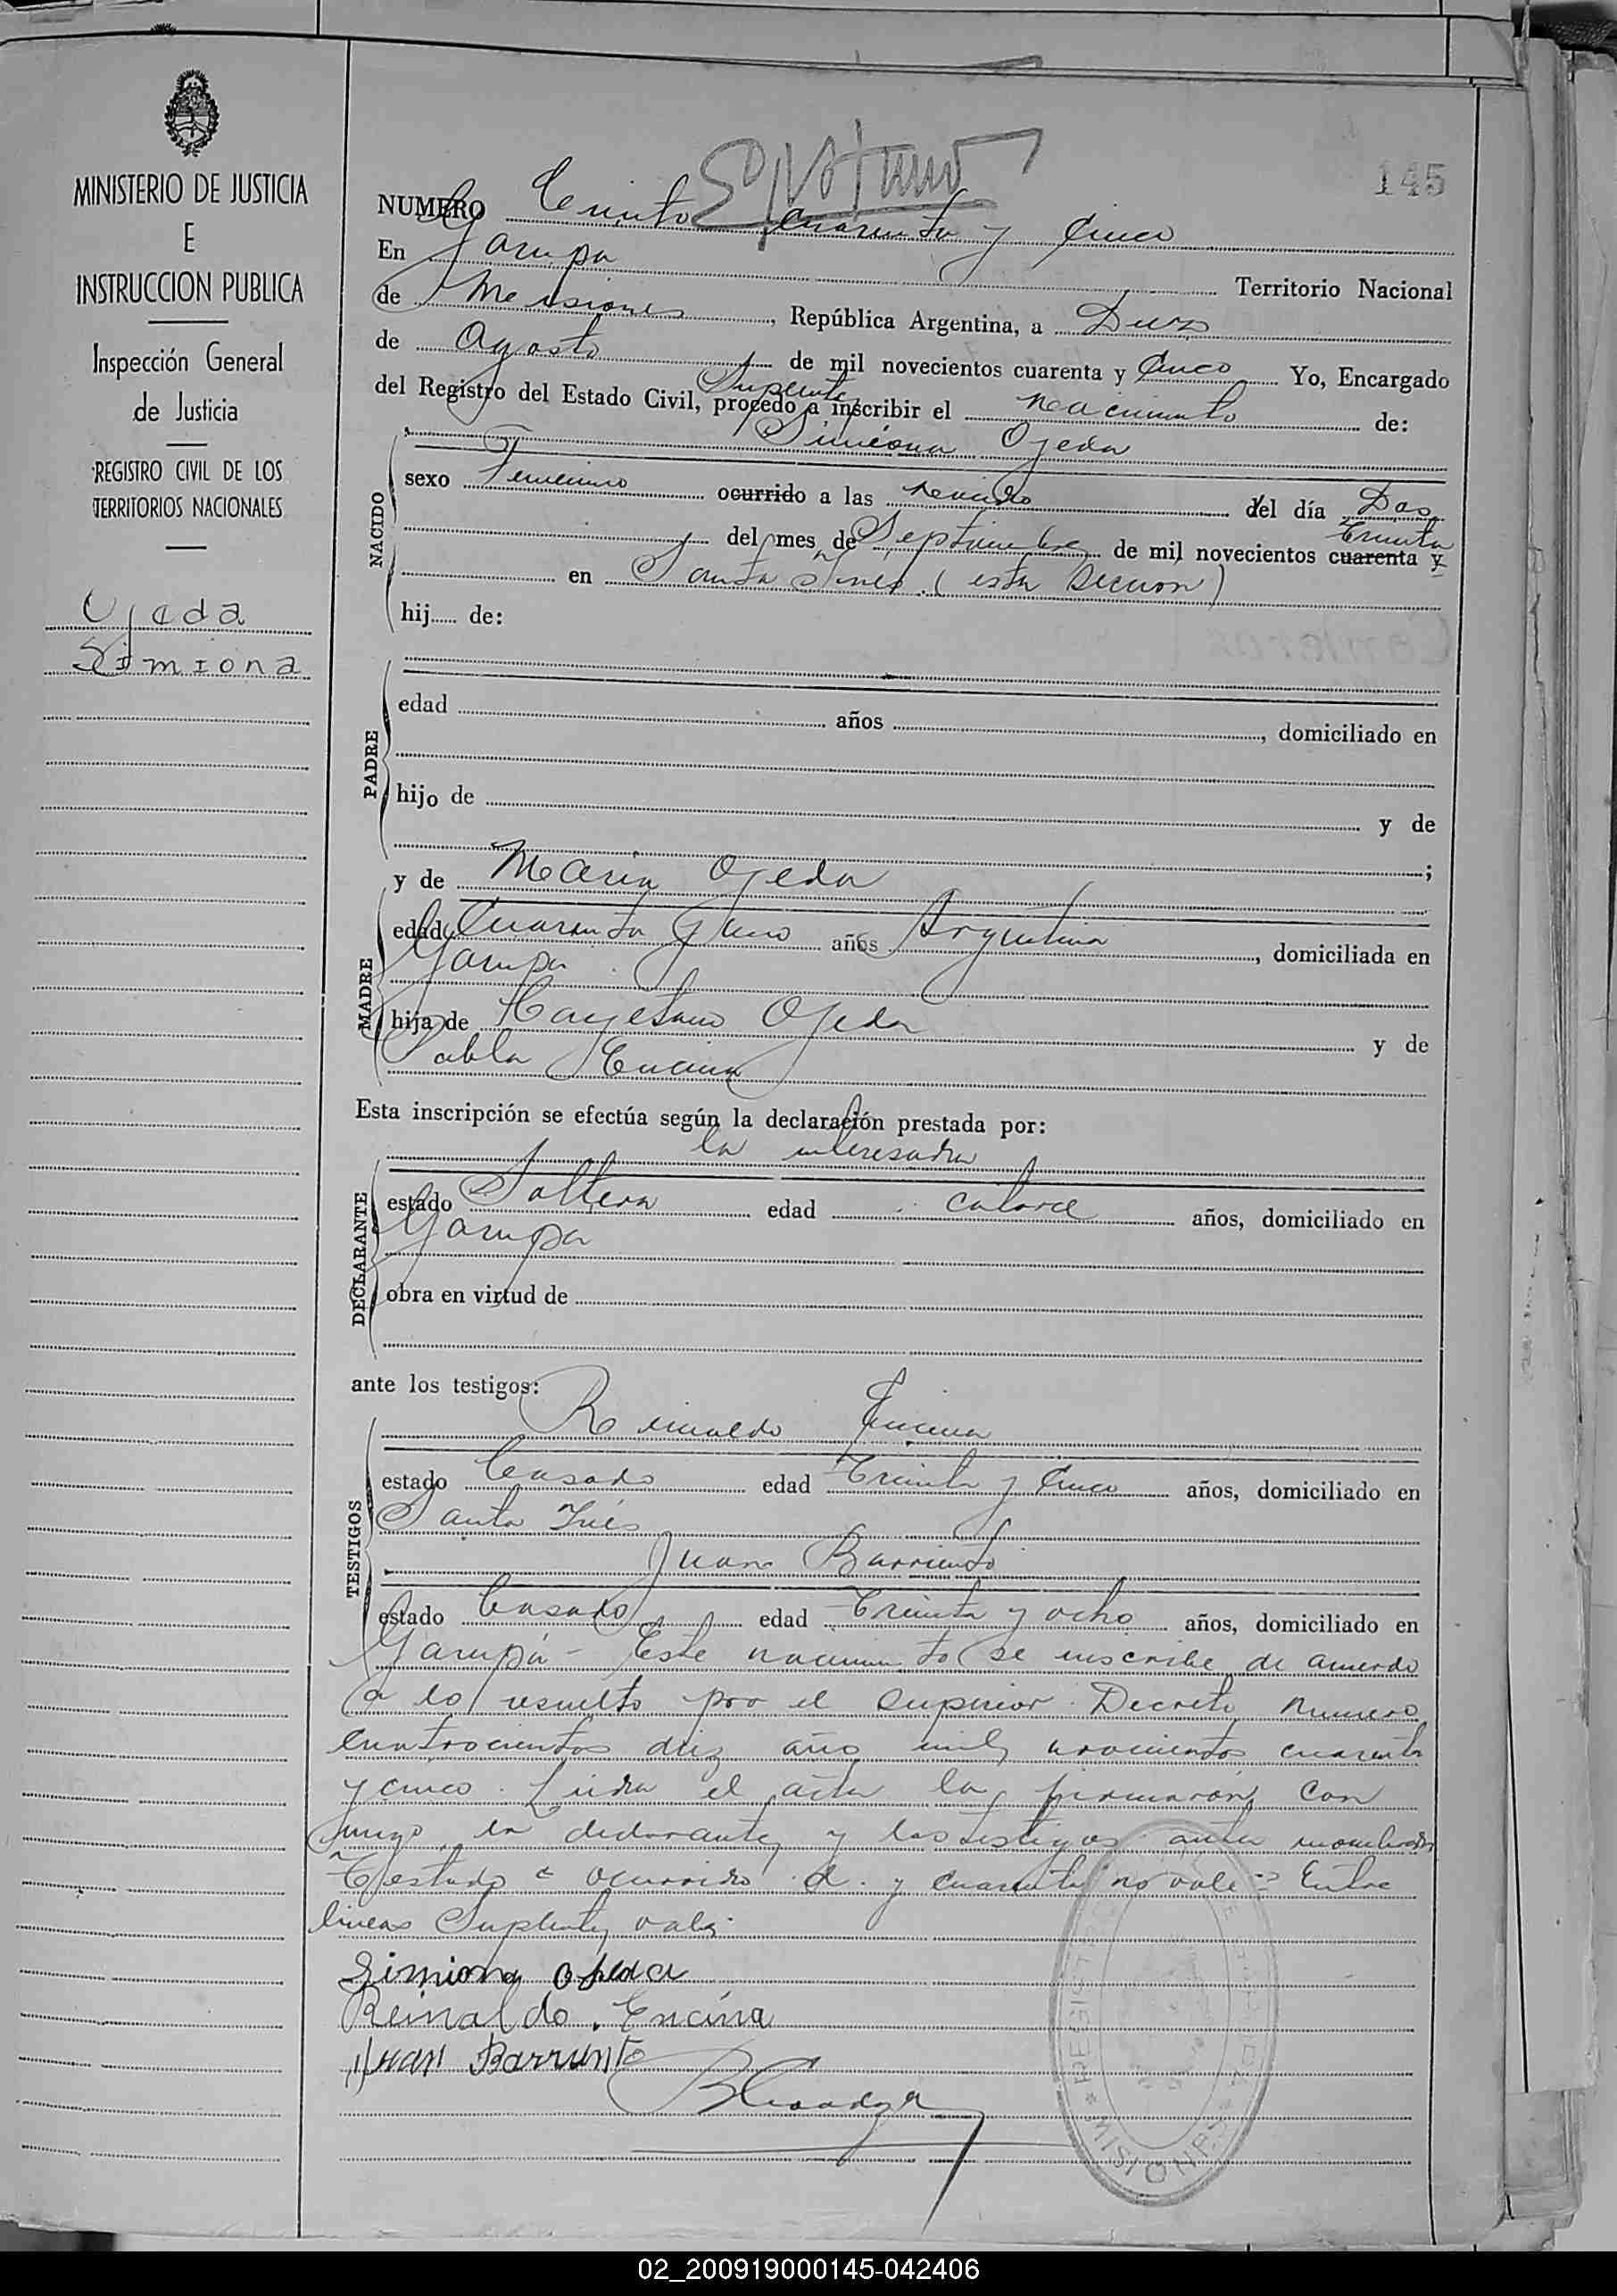 MINISTERIO DE JUSTICIA
E
INSTRUCCION PUBLICA
Inspección General
de Justicia
REGISTRO CIVIL DE LOS
TERRITORIOS NACIONALES
Ojeda
Simiona
145
NUMERO Ciento cuarenta y Cinco
En Garupa Territorio Nacional
de Misiones, República Argentina, a Diez
de Agosto de mil novecientos cuarenta y Cinco Yo, Encargado
Suplente
del Registro del Estado Civil, procedo a inscribir el nacimiento de:
Simiona Ojeda
NACIDO
sexo Femenino ocurrido a las nacido del día Dos
Treinta
del mes de Septiembre de mil novecientos cuarenta y
en Santa Inés (esta Sección)
hij de:
PADRE
edad años , domiciliado en
hijo de y de
;
y de Maria Ojeda
MADRE
edad Cuarenta y Uno años Argentina, domiciliada en
Garupa
hija de Cayetano Ojeda y de
Pabla Encina
Esta inscripción se efectúa según la declaración prestada por:
la interesada
DECLARANTE
estado Soltera edad catorce años, domiciliado en
Garupa
obra en virtud de
ante los testigos:
Reinaldo Encina
TESTIGOS
estado Casado edad Treinta y Cinco años, domiciliado en
Santa Inés
Juan Barriento
estado Casado edad Treinta y ocho años, domiciliado en
Garupá - Este nacimiento se inscribe de acuerdo
a lo resuelto por el Superior Decreto numero
cuatrocientos diez año mil novecientos cuarenta
y cinco. Leida el acta la firmaron con
migo la declarante y los testigos antes nombrados
Testado = ocurrido d. y cuarenta no vale = Entre
lineas Suplente, vale.
Simiona Ojeda
Reinaldo. Encina
Juan Barriento
REGISTRO
MISIONES
02_200919000145-042406